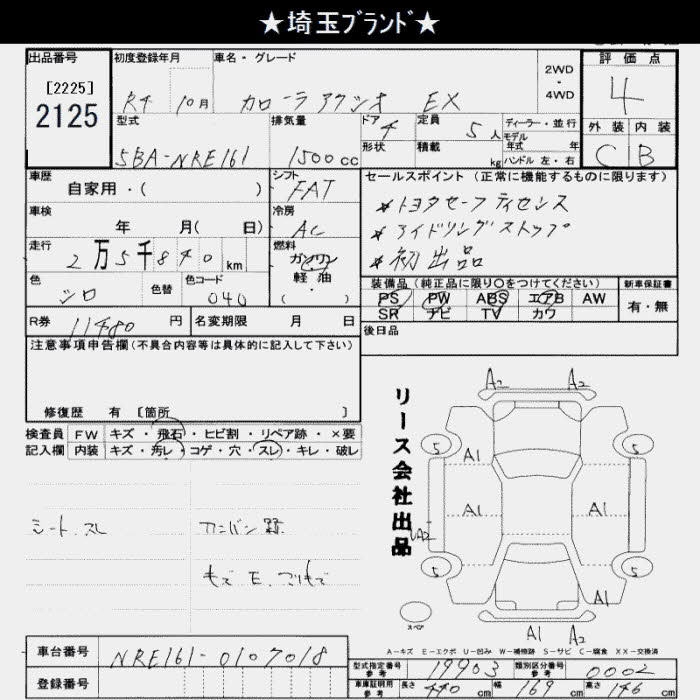 ★埼玉ﾌﾞﾗﾝﾄﾞ★
出品番号
[2225]
2125
初度登録年月
R4 10月
車名・グレード
カローラアクシオ EX
2WD
・
4WD
評価点
4
外装 内装
C B
型式
5BA-NRE161
排気量
1500cc
ドア
4
形状
定員
5人
積載
kg
ディーラー・並行
モデル年式 年
ハンドル 左・右
車歴
自家用・( )
シフト
FAT
車検
年 月( 日)
冷房
AC
走行
2万5千840km
燃料
ガソリン
軽油
・
( )
色
シロ
色替
色カラーコード
040
R券
11480円
名変期限 月 日
セールスポイント (正常に機能するものに限ります)
★トヨタセーフティセンス
★アイドリングストップ
★初出品
装備品(純正品に限り○をつけてください)
PS PW ABS エアB AW
SR ナビ TV カワ
新車保証書
有・無
後日品
注意事項申告欄(不具合内容等は具体的に記入して下さい)
修復歴 有 [箇所 ]
検査員 FW キズ・飛石・ヒビ割・リペア跡・×要
記入欄 内装 キズ・汚レ・コゲ・穴・スレ・キレ・破レ
シート、スレ
カンバン跡
リース会社出品
A2 A2
5 5
A1
A1 A1
UA2
5 5
A1
A1 A2
スペア
A-キズ E-エクボ U-凹み W-補修跡 S-サビ C-腐食 XX-交換済
車台番号
NRE161-0107018
登録番号
型式指定番号
参考
19903
類別区分番号
参考
0002
車庫証明用
参考
長さ 440cm 幅 169cm 高さ 146cm